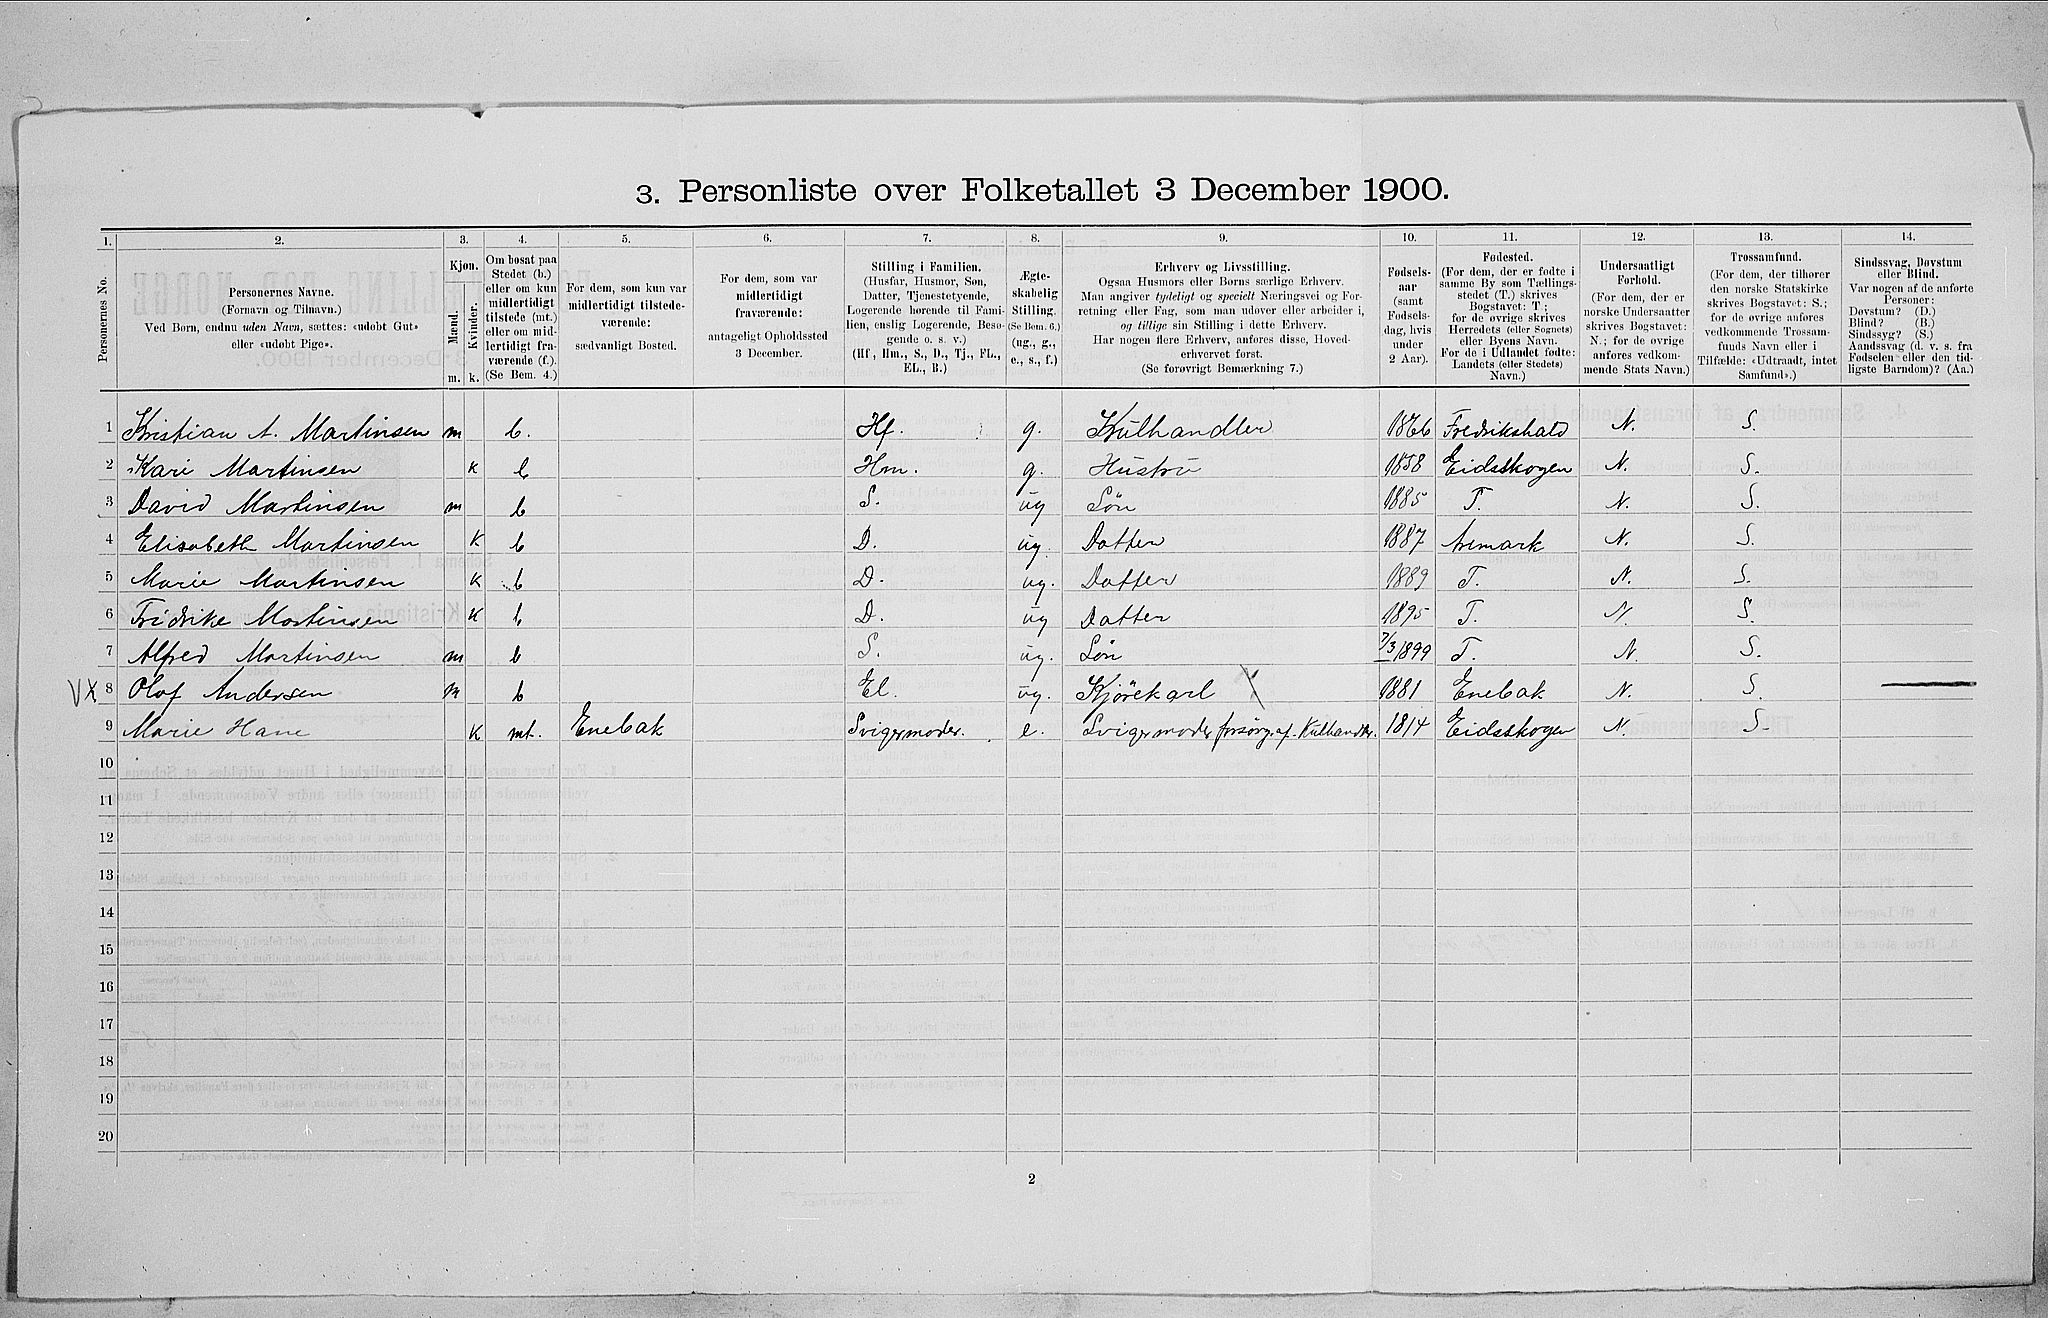 3. Personliste over Folketallet 3 December 1900.
1. 2. 3. 4. 5. 6. 7. 8. 9. 10. 11. 12. 13. 14.
Personernes No.
Personernes Navne.
(Fornavn og Tilnavn.)
Ved Børn, endnu uden Navn, sættes: «udøbt Gut»
eller «udøbt Pige».
Kjøn.
Mænd.
Kvinder.
m. k.
Om bosat paa
Stedet (b.)
eller om kun
midlertidigt
tilstede (mt.)
eller om mid-
lertidigt fra-
værende (f.).
(Se Bem. 4.)
For dem, som kun var
midlertidigt tilstede-
værende:
sædvanligt Bosted.
For dem, som var
midlertidigt
fraværende:
antageligt Opholdssted
3 December.
Stilling i Familien.
(Husfar, Husmor, Søn,
Datter, Tjenestetyende,
Logerende hørende til Fami-
lien, enslig Logerende, Besø-
gende o. s. v.)
(Hf., Hm., S., D., Tj., FL.,
EL., B.)
Ægte-
skabelig
Stilling.
(Se Bem. 6.)
(ug., g.,
e., s., f.)
Erhverv og Livsstilling.
Ogsaa Husmors eller Børns særlige Erhverv.
Man angiver tydeligt og specielt Næringsvei og For-
retning eller Fag, som man udøver eller arbeider i,
og tillige sin Stilling i dette Erhverv.
Har nogen flere Erhverv, anføres disse, Hoved-
erhvervet først.
(Se forøvrigt Bemærkning 7.)
Fødsels-
aar
(samt
Fødsels-
dag, hvis
under
2 Aar).
Fødested.
(For dem, der er fødte i
samme By som Tællings-
stedet (T.) skrives
Bogstavet: T;
for de øvrige skrives
Herredets (eller Sognets)
eller Byens Navn.
For de i Udlandet fødte:
Landets (eller Stedets)
Navn.)
Undersaatligt
Forhold.
(For dem, der er
norske Undersaatter
skrives Bogstavet:
N.; for de øvrige
anføres vedkom-
mende Stats Navn.)
Trossamfund.
(For dem, der tilhører
den norske Statskirke
skrives Bogstavet: S.;
for de øvrige anføres
vedkommende Trossam-
funds Navn eller i
Tilfælde: «Udtraadt, intet
Samfund».)
Sindssvag, Døvstum
eller Blind.
Var nogen af de anførte
Personer:
Døvstum? (D.)
Blind? (B.)
Sindssyg? (S.)
Aandssvag (d. v. s. fra
Fødselen eller den tid-
ligste Barndom)? (Aa.)
1 Kristian A. Martinsen m b. Hf. g. Kulhandler 1866 Fredrikshald N. S.
2 Kari Martinsen k b Hm. g. Hustru 1858 Eidsskogen N. S.
3 David Martinsen m b S. ug Søn 1885 T. N. S.
4 Elisabeth Martinsen K b D. ug. Datter 1887 Aremark N. S.
5 Marie Martinsen K b D. ug. Datter 1889 T. N. S.
6 Fridrike Martinsen K b D. ug Datter 1895 T. N. S.
7 Alfred Martinsen m b S. ug. Søn 7/3 1899 T. N. S.
VX 8 Olaf Andersen m b El. ug. Kjørekarl X 1881 Enebak N. S.
9 Marie Hane K mt. Enebak Svigermoder. e. Svigermoder forsørg. af Kulhandler. 1814 Eidsskogen N. S.
10
11
12
13
14
15
16
17
18
19
20
2